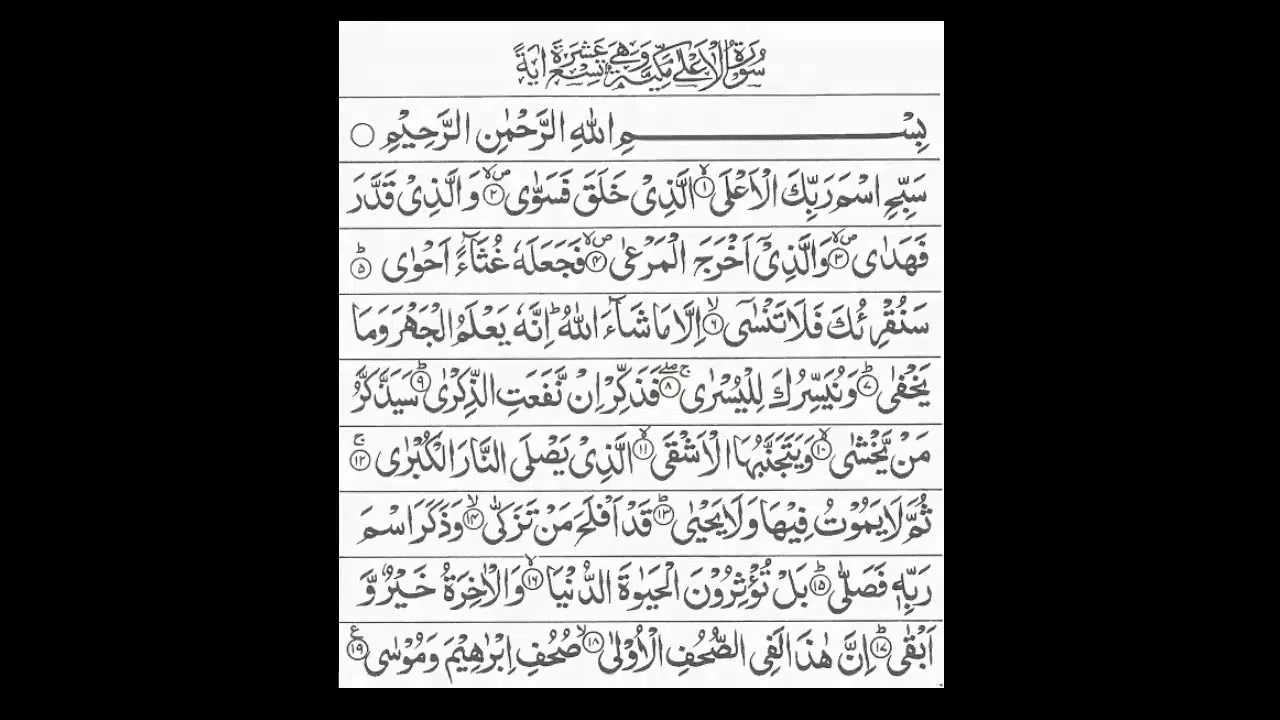 سُوْرَةُ الْاَعْلٰى مَكِّيَّةٌ وَّهِىَ تِسْعَ عَشَرَةَ اٰيَةً
بِسْــــــــــــمِ اللهِ الرَّحْمٰنِ الرَّحِيْمِ ○
سَبِّحِ اسْمَ رَبِّكَ الْاَعْلَى ۙ﴿۱﴾ الَّذِىْ خَلَقَ فَسَوّٰى ۪ۙ﴿۲﴾ وَ الَّذِىْ قَدَّرَ
فَهَدٰى ۪ۙ﴿۳﴾ وَالَّذِىْۤ اَخْرَجَ الْمَرْعٰى ۪ۙ﴿۴﴾ فَجَعَلَهٗ غُثَآءً اَحْوٰى ؕ﴿۵﴾
سَنُقْرِئُكَ فَلَا تَنْسٰٓى ۙ﴿۶﴾ اِلَّا مَا شَآءَ اللهُ ؕ اِنَّهٗ يَعْلَمُ الْجَهْرَ وَمَا
يَخْفٰى ؕ﴿۷﴾ وَنُيَسِّرُكَ لِلْيُسْرٰى ۚۖ﴿۸﴾ فَذَكِّرْ اِنْ نَّفَعَتِ الذِّكْرٰى ؕ﴿۹﴾ سَيَذَّكَّرُ
مَنْ يَّخْشٰى ۙ﴿۱۰﴾ وَيَتَجَنَّبُهَا الْاَشْقَى ۙ﴿۱۱﴾ الَّذِىْ يَصْلَى النَّارَ الْكُبْرٰى ۚ﴿۱۲﴾
ثُمَّ لَا يَمُوْتُ فِيْهَا وَلَا يَحْيٰى ؕ﴿۱۳﴾ قَدْ اَفْلَحَ مَنْ تَزَكّٰى ۙ﴿۱۴﴾ وَذَكَرَ اسْمَ
رَبِّهٖ فَصَلّٰى ؕ﴿۱۵﴾ بَلْ تُؤْثِرُوْنَ الْحَيٰوةَ الدُّنْيَا ۙ﴿۱۶﴾ وَالْاٰخِرَةُ خَيْرٌ وَّ
اَبْقٰى ؕ﴿۱۷﴾ اِنَّ هٰذَا لَفِى الصُّحُفِ الْاُوْلٰى ۙ﴿۱۸﴾ صُحُفِ اِبْرٰهِيْمَ وَمُوْسٰى ﴿۱۹﴾ ع